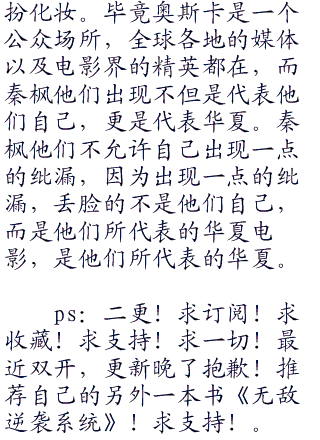 扮化妆。毕竟奥斯卡是一个
公众场所，全球各地的媒体
以及电影界的精英都在，而
秦枫他们出现不但是代表他
们自己，更是代表华夏。秦
枫他们不允许自己出现一点
的纰漏，因为出现一点的纰
漏，丢脸的不是他们自己，
而是他们所代表的华夏电
影，是他们所代表的华夏。
ps：二更！求订阅！求
收藏！求支持！求一切！最
近双开，更新晚了抱歉！推
荐自己的另外一本书《无敌
逆袭系统》！求支持！。